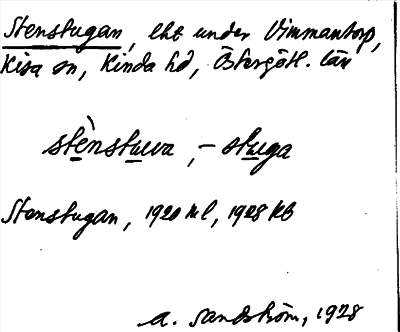 Stenstugan, lht under Vimmantorp,
Kisa sn, Kinda hd, Östergötl. län
stènstuwa, – stuga
Stenstugan, 1920 ml, 1928 kb
A. Sandström, 1928